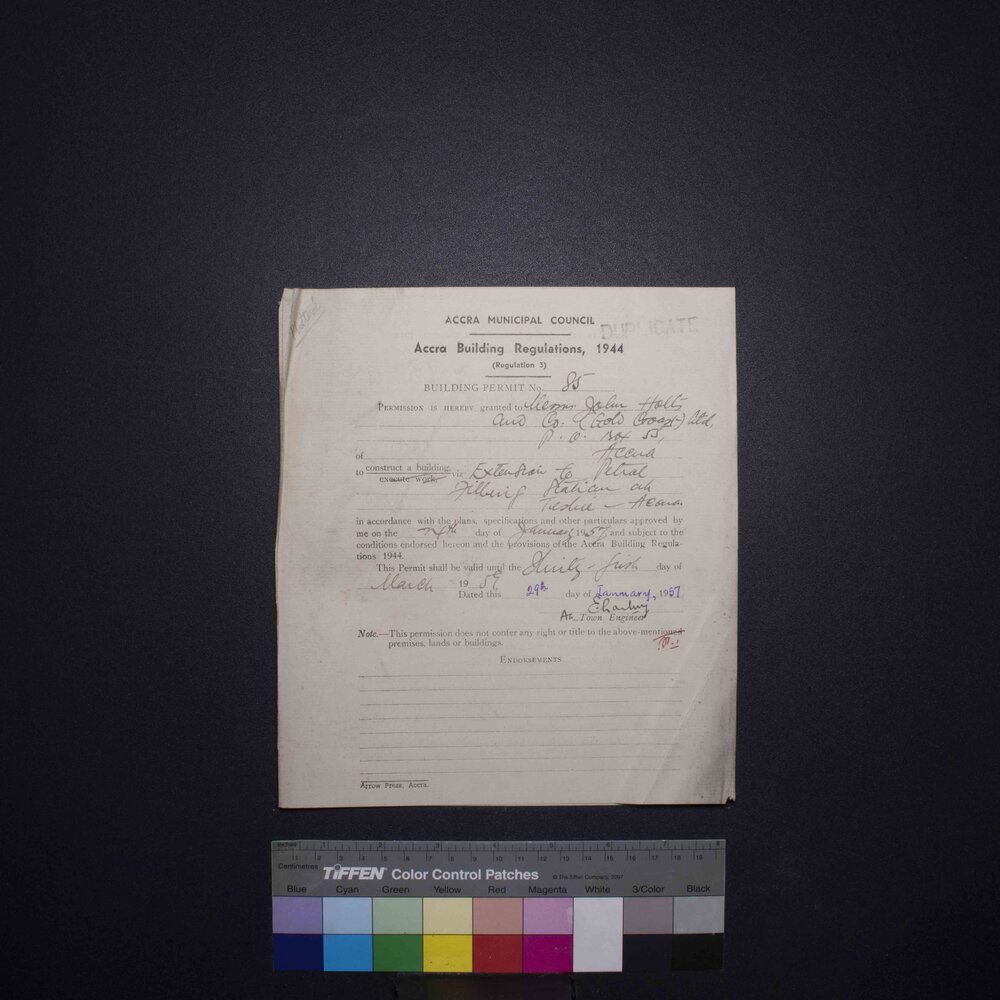 Plotted
ACCRA MUNICIPAL COUNCIL
DUPLICATE
Accra Building Regulations, 1944
(Regulation 3)
BUILDING PERMIT No. 85
PERMISSION IS HEREBY granted to Messrs John Holts
and Co. (Gold Coast) Ltd,
P. O. Box 55,
of Accra
to construct a building, viz Extension to Petrol
execute work,
Filling Station at
Teshie - Accra.
in accordance with the plans, specifications and other particulars approved by
me on the day of January 1957 and subject to the
conditions endorsed hereon and the provisions of the Accra Building Regula-
tions 1944.
This Permit shall be valid until the Thirty-first day of
March 1959
Dated this 29th day of January, 1957.
Town Engineer
Note.—This permission does not confer any right or title to the above-mentioned
premises, lands or buildings.
ENDORSEMENTS
Arrow Press, Accra.
Inches 1 2 3 4 5 6 7 8
Centimetres 1 2 3 4 5 6 7 8 9 10 11 12 13 14 15 16 17 18 19
TIFFEN Color Control Patches © The Tiffen Company, 2007
Blue Cyan Green Yellow Red Magenta White 3/Color Black